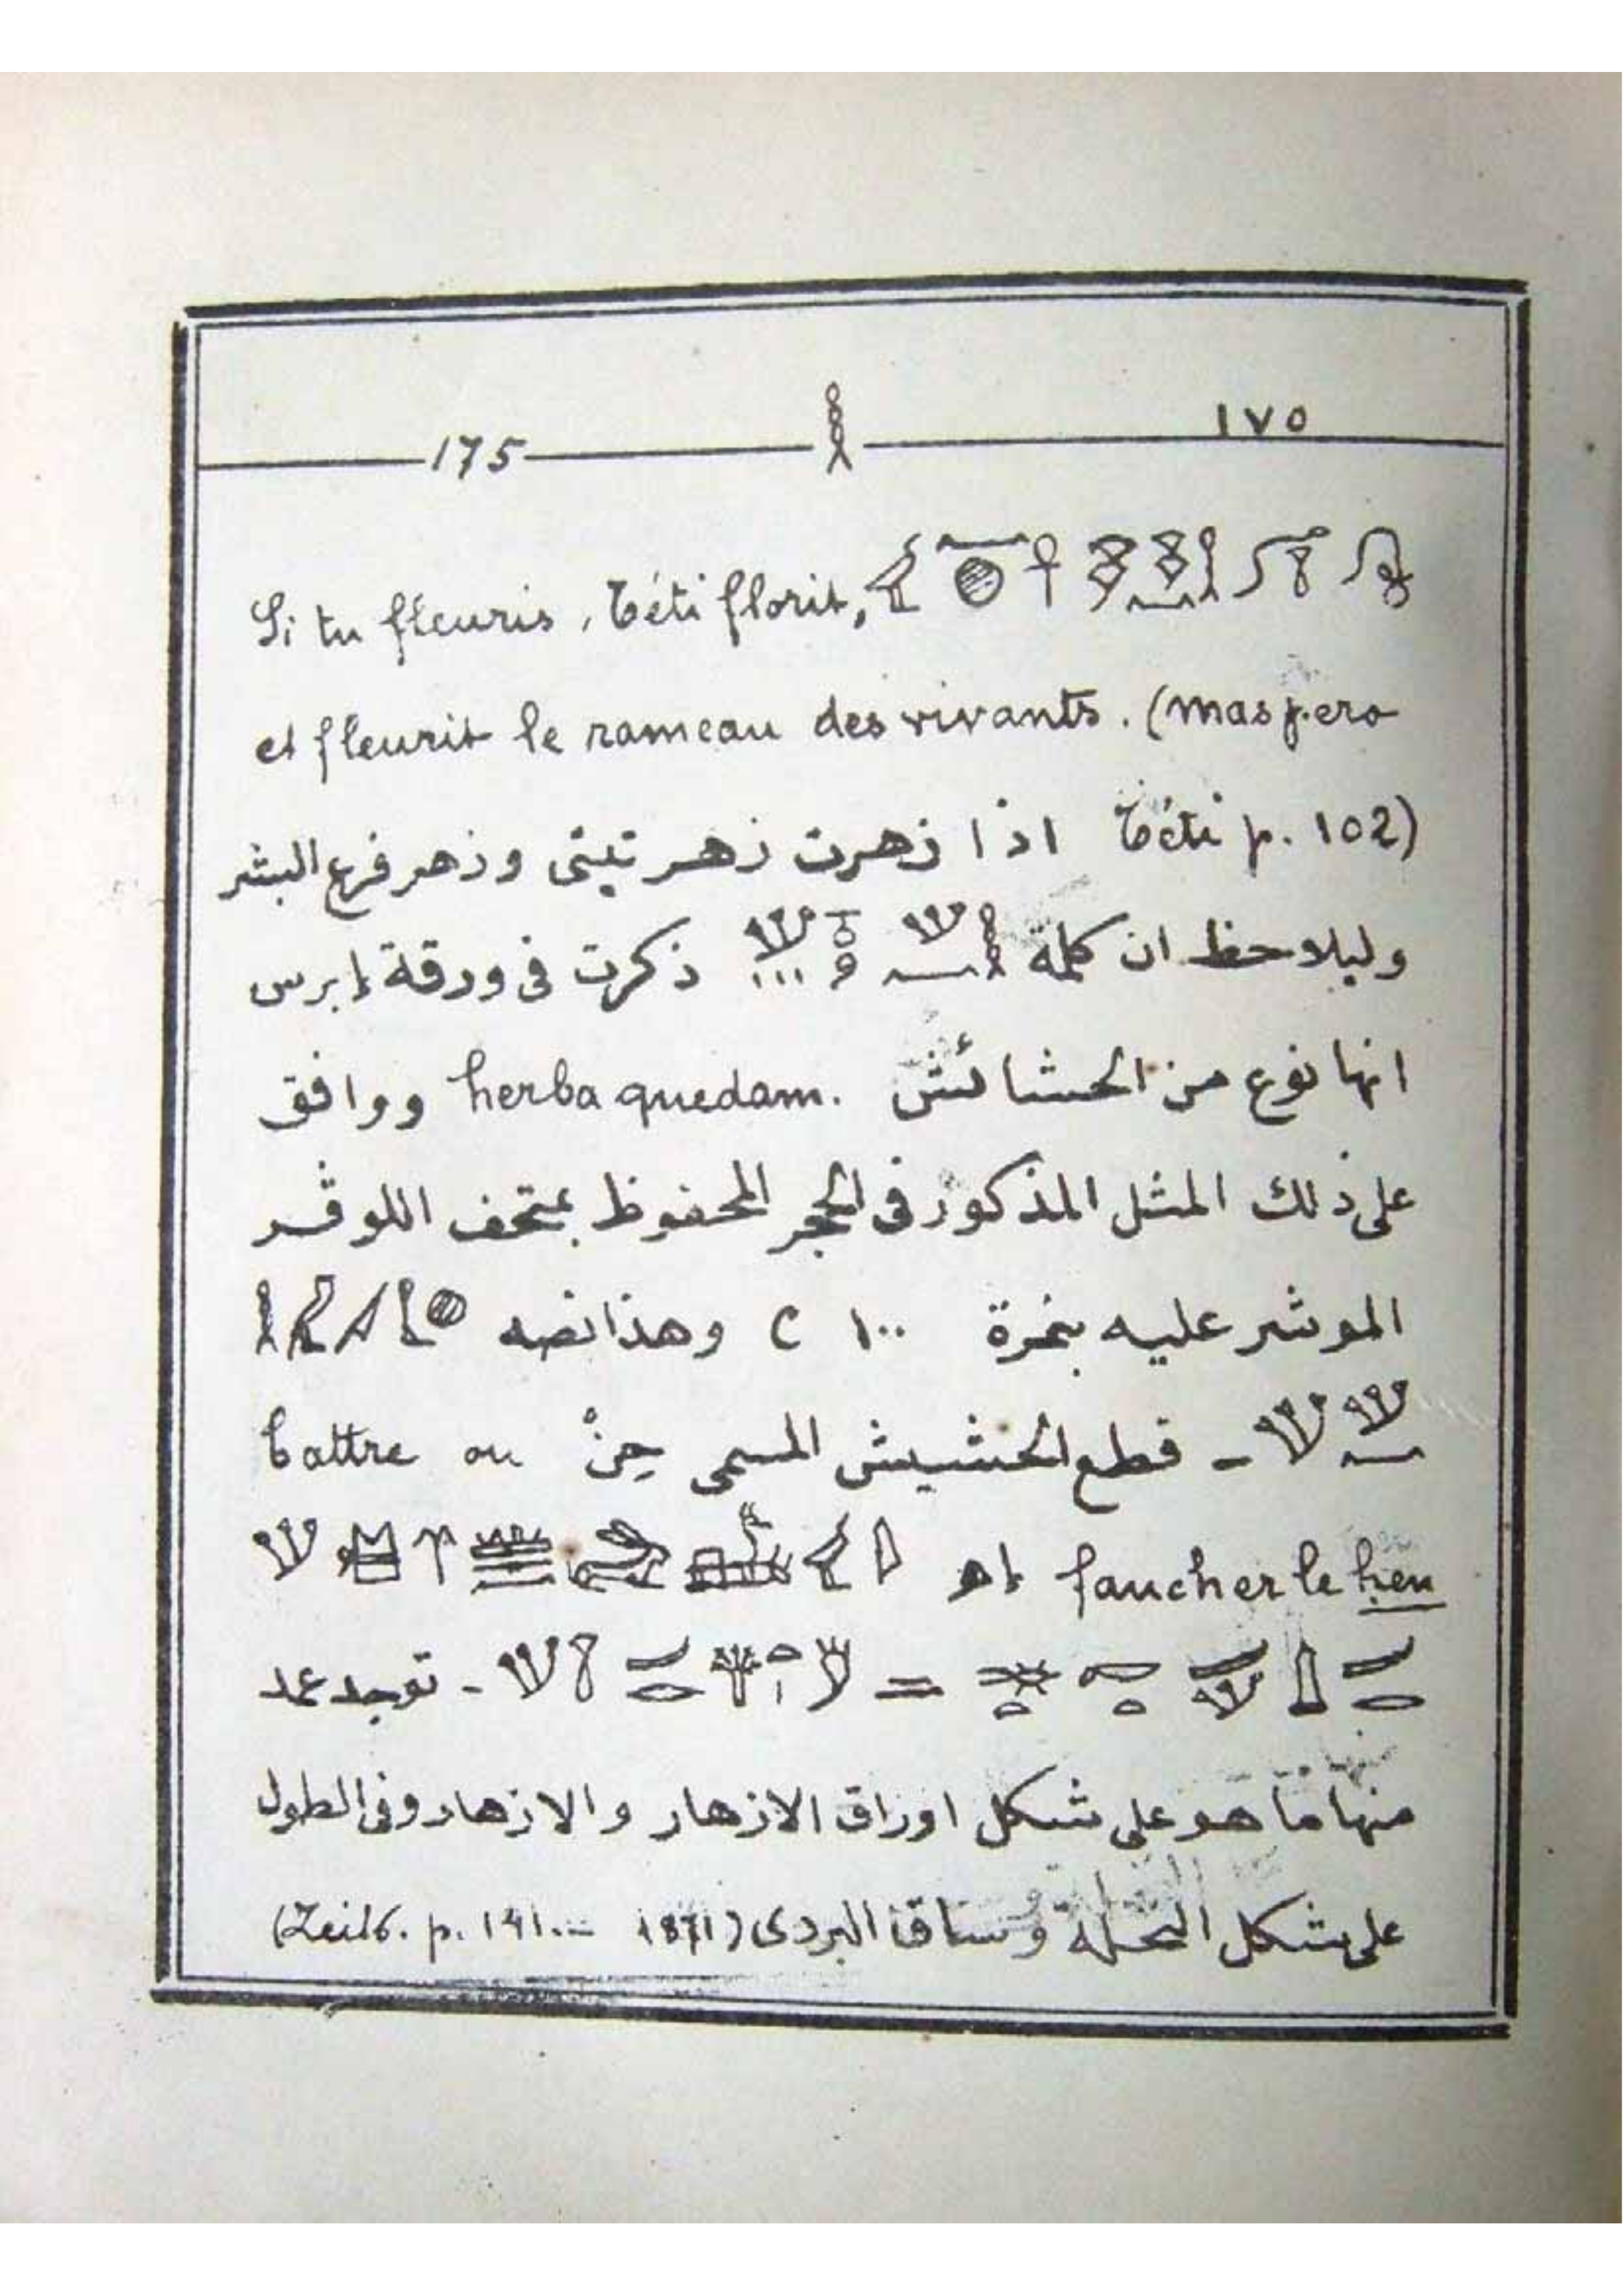 175 𓎛 ١٧٥
Si tu fleuris, Téti florit,
et fleurit le rameau des vivants. (maspero
Téti p. 102) اذا زهرت زهر تيتى وزهر فرع البشر
وليلاحظ ان كلمة ذكرت فى ورقة إبرس
انها نوع من الحشائش herba quedam. ووافق
على ذلك المثل المذكور فى الحجر المحفوظ بمتحف اللوڤر
الموشر عليه بنمرة C ١٠٠ وهذا نصه
- قطع الحشيش المسمى حِنْ battre ou
faucher le hen اهـ
- توجد عمد
منها ما هو على شكل اوراق الازهار والازهار وفى الطول
على شكل النخلة وساق البردى (Zeits. p. 141.- 1871)